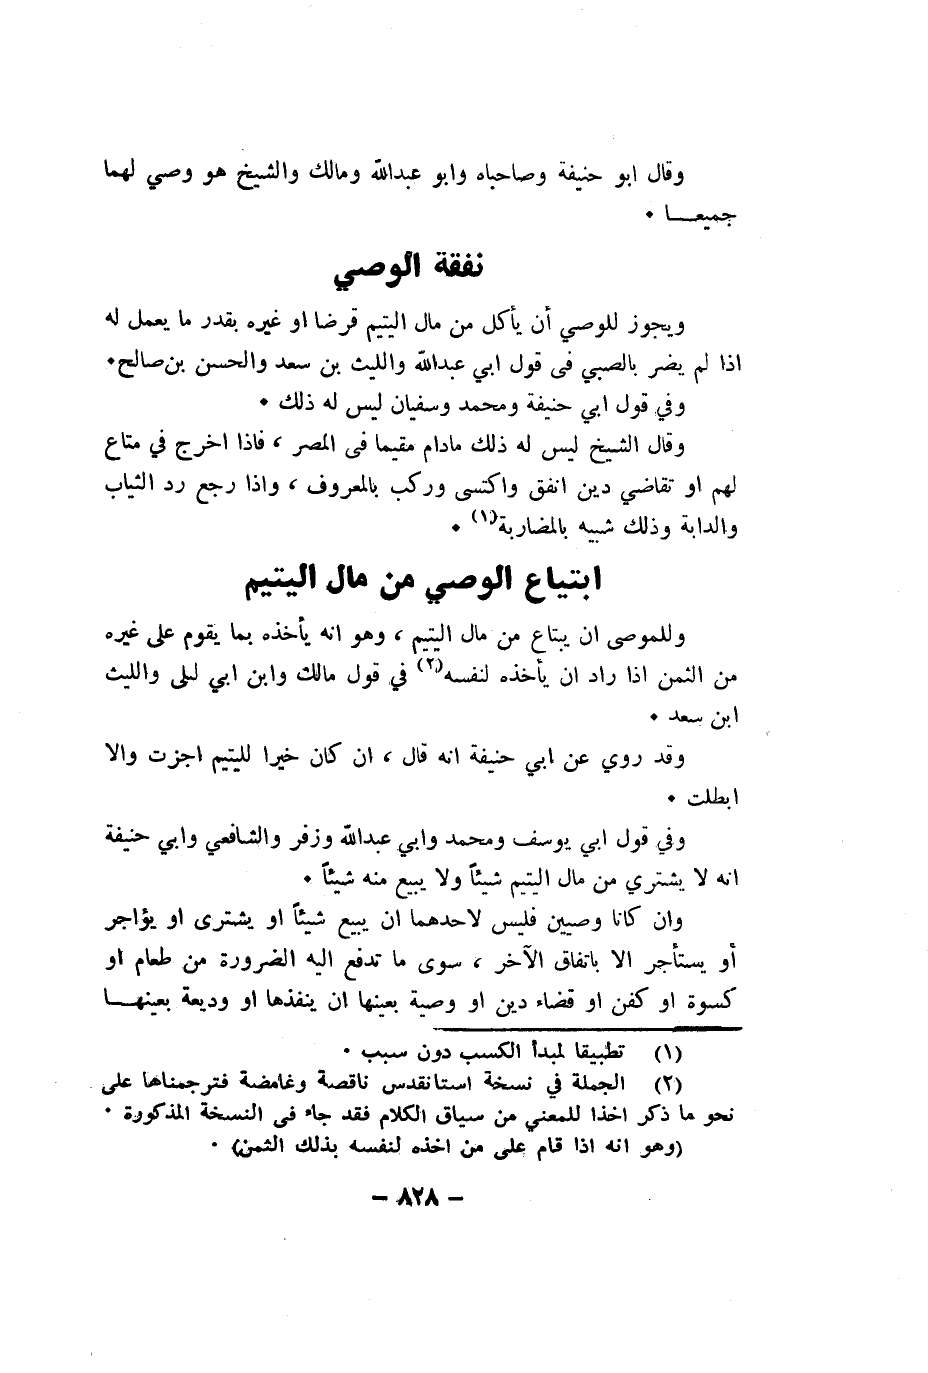 وقال ابو حنيفة وصاحباه وابو عبدالله ومالك والشيخ هو وصي لهما
جميعـــا .
نفقة الوصي
ويجوز للوصي أن يأكل من مال اليتيم قرضا او غيره بقدر ما يعمل له
اذا لم يضر بالصبي فى قول ابي عبدالله والليث بن سعد والحسن بن صالح.
وفي قول ابي حنيفة ومحمد وسفيان ليس له ذلك .
وقال الشيخ ليس له ذلك مادام مقيما فى المصر ، فاذا اخرج في متاع
لهم او تقاضي دين انفق واكتسى وركب بالمعروف ، واذا رجع رد الثياب
والدابة وذلك شبيه بالمضاربة(١) .
ابتياع الوصي من مال اليتيم
وللموصى ان يبتاع من مال اليتيم ، وهو انه يأخذه بما يقوم على غيره
من الثمن اذا راد ان يأخذه لنفسه(٢) في قول مالك وابن ابي ليلى والليث
ابن سعد .
وقد روي عن ابي حنيفة انه قال ، ان كان خيرا لليتيم اجزت والا
ابطلت .
وفي قول ابي يوسف ومحمد وابي عبدالله وزفر والشافعي وابي حنيفة
انه لا يشتري من مال اليتيم شيئاً ولا يبيع منه شيئاً .
وان كانا وصيين فليس لاحدهما ان يبيع شيئاً او يشترى او يؤاجر
أو يستأجر الا باتفاق الآخر ، سوى ما تدفع اليه الضرورة من طعام او
كسوة او كفن او قضاء دين او وصية بعينها ان ينفذها او وديعة بعينهـــا
(١) تطبيقا لمبدأ الكسب دون سبب .
(٢) الجملة في نسخة استانقدس ناقصة وغامضة فترجمناها على
نحو ما ذكر اخذا للمعني من سياق الكلام فقد جاء فى النسخة المذكورة .
(وهو انه اذا قام على من اخذه لنفسه بذلك الثمن) .
– ٨٢٨ –